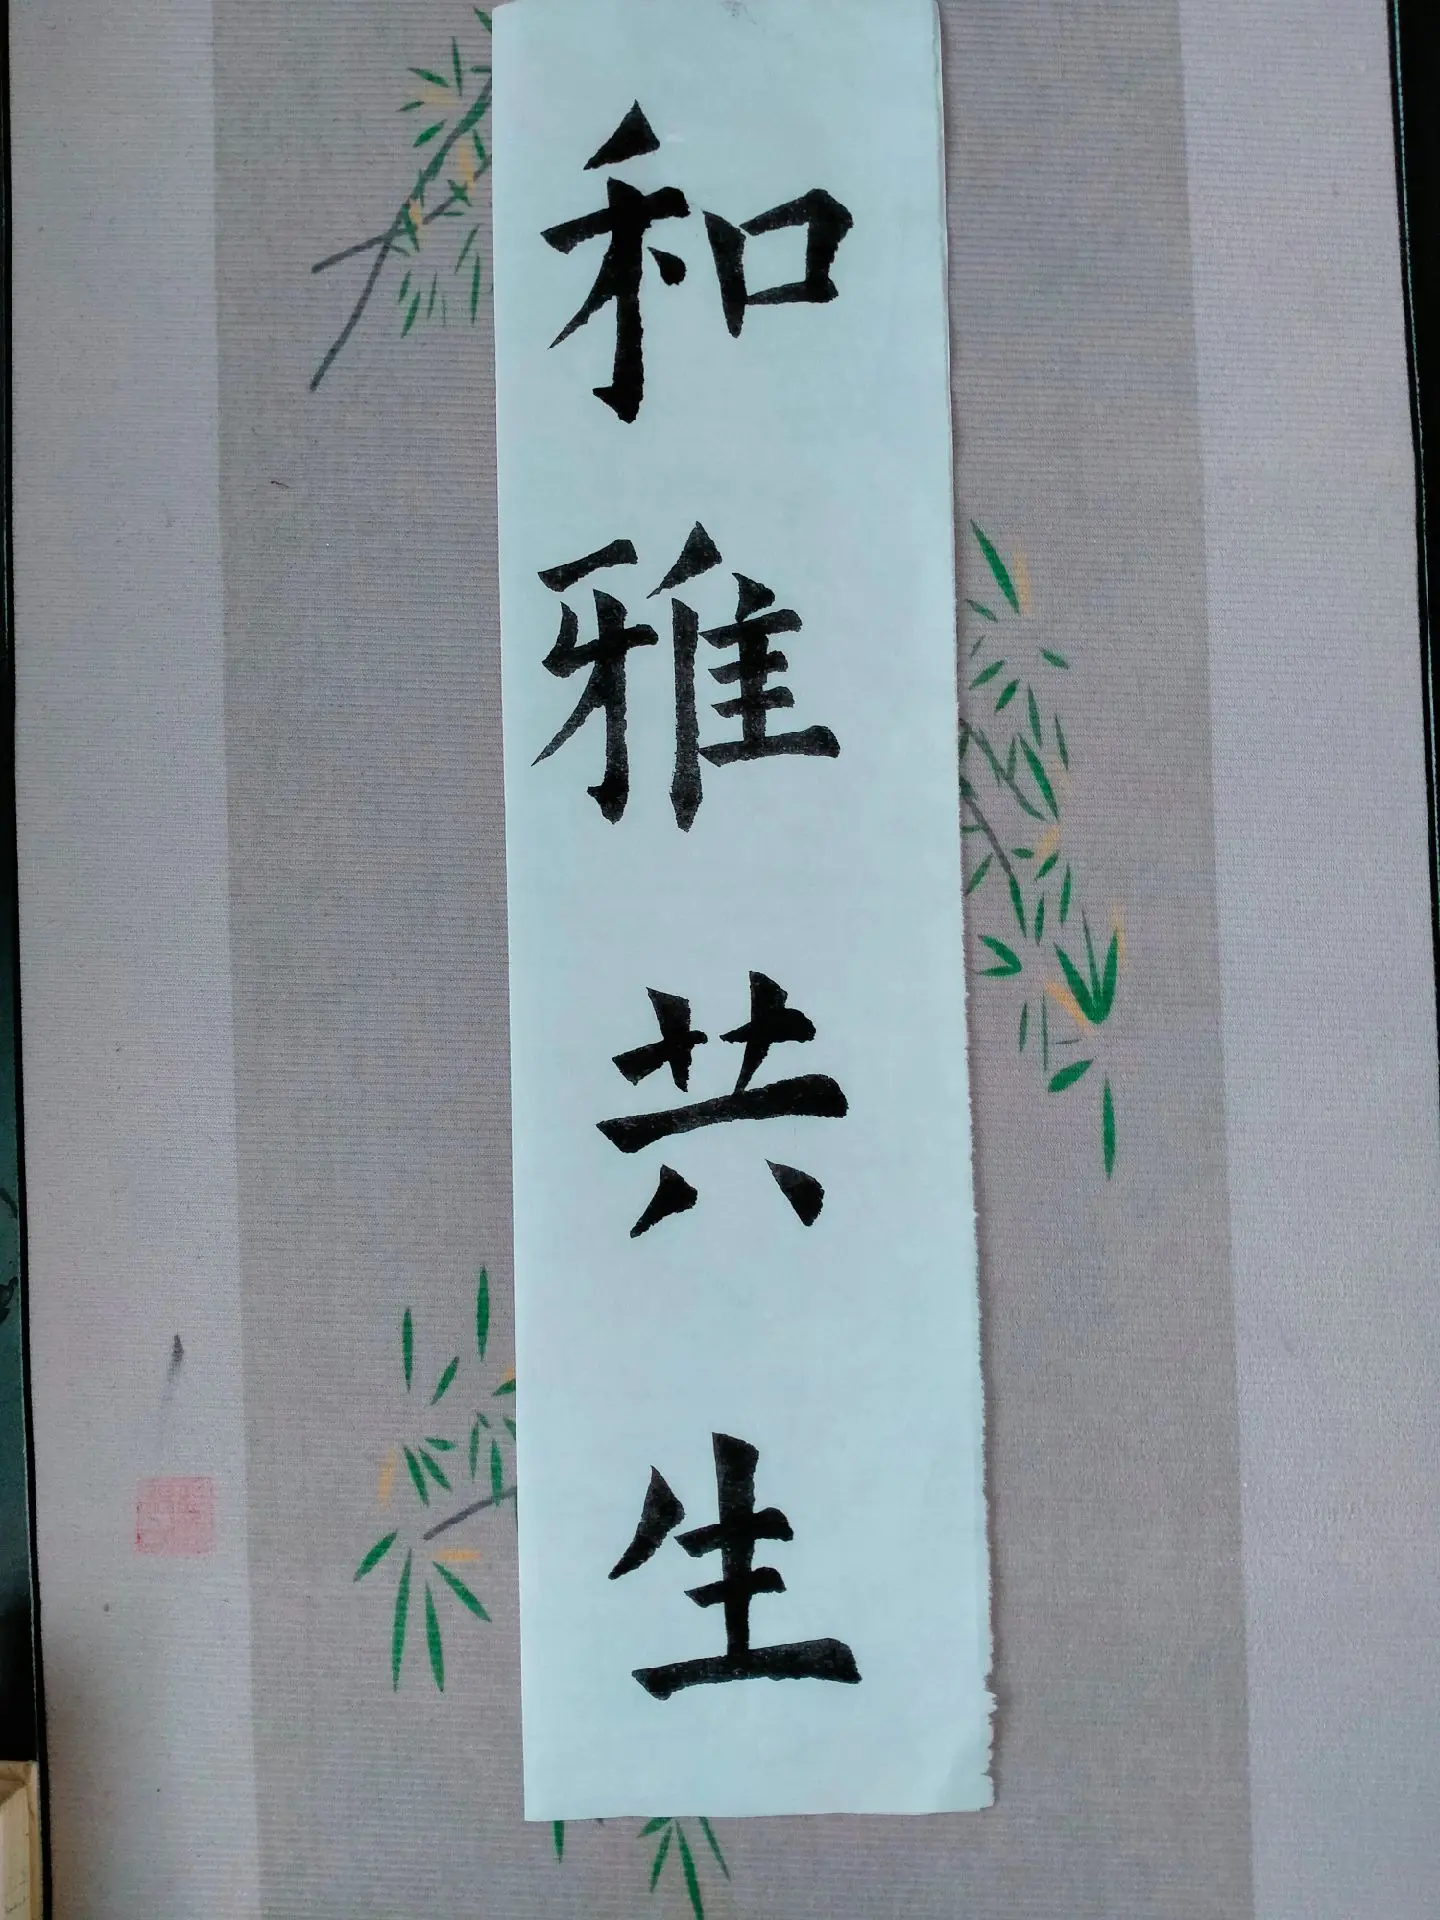 和雅共生